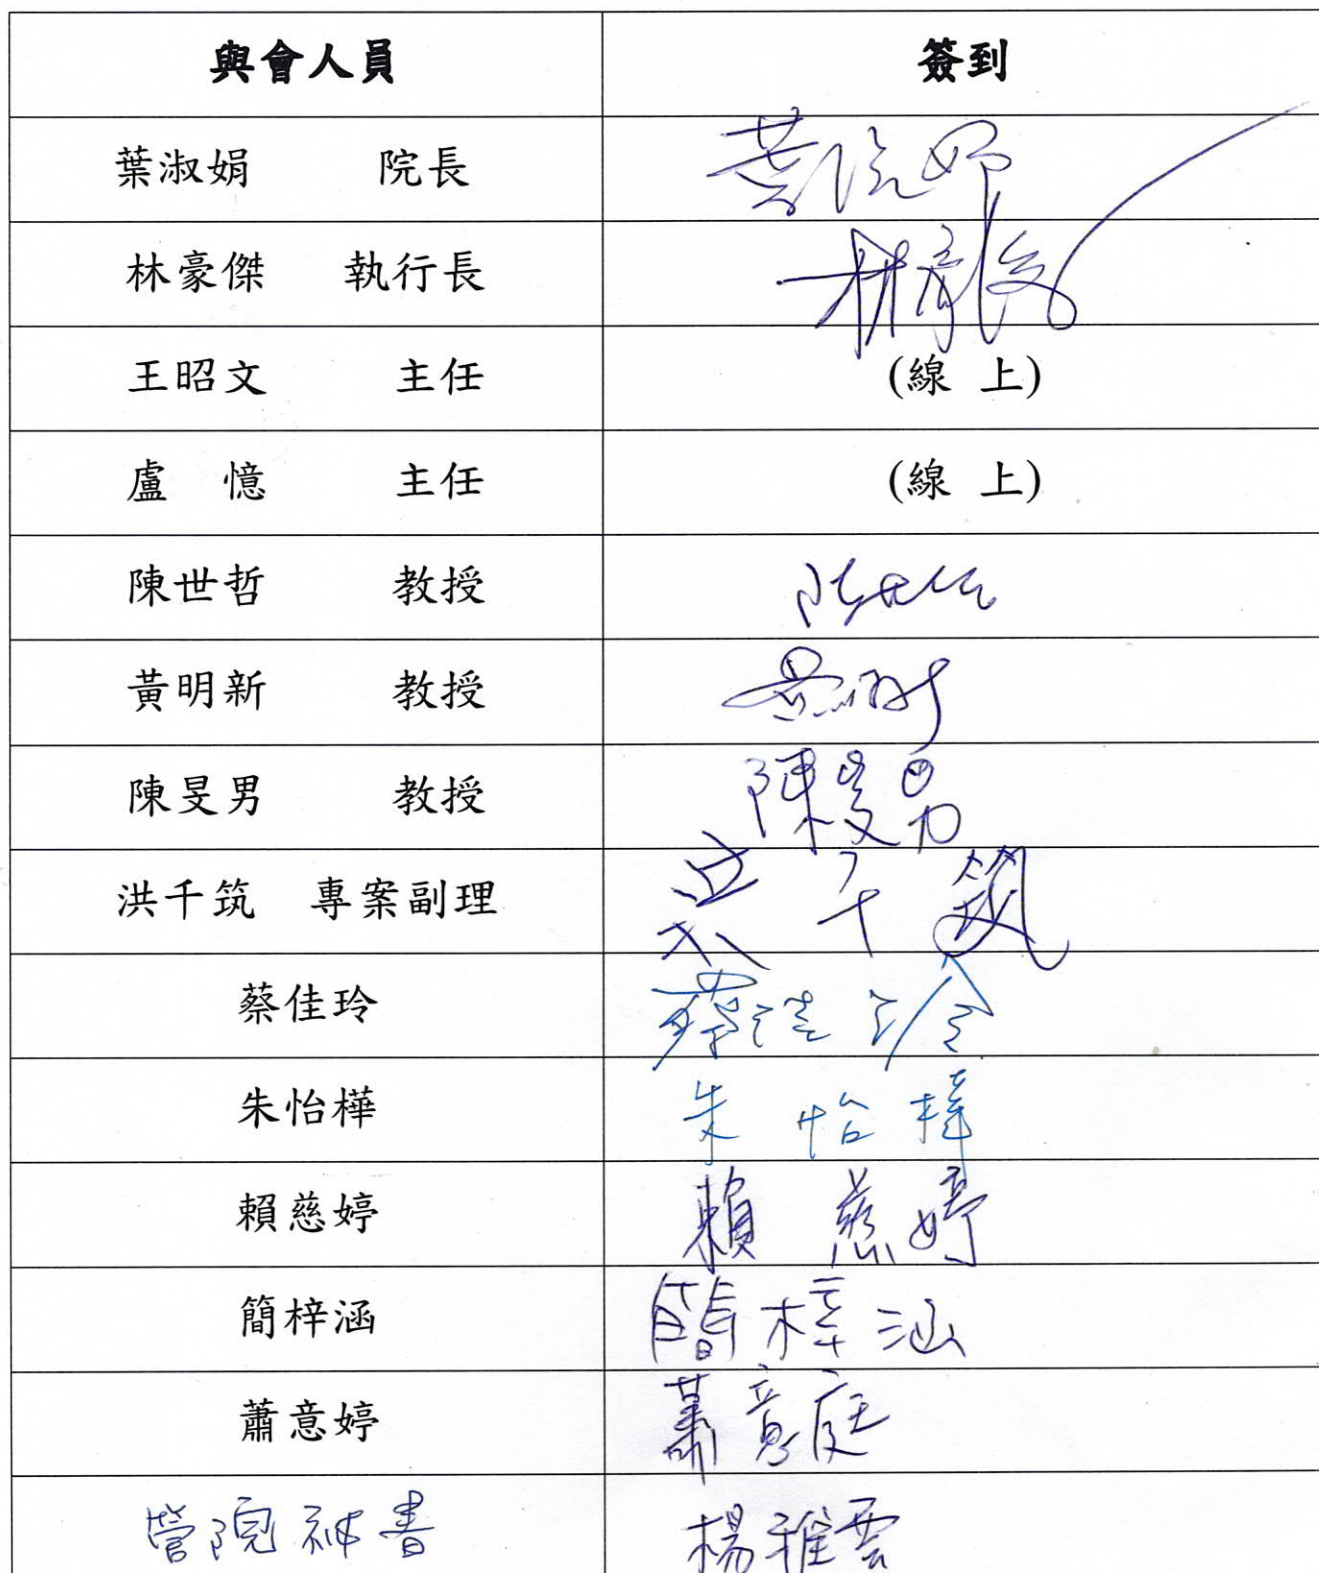 與會人員 簽到
葉淑娟 院長
林豪傑 執行長 林豪傑
王昭文 主任 (線 上)
盧 憶 主任 (線 上)
陳世哲 教授 陳世哲
黃明新 教授 黃明新
陳旻男 教授 陳旻男
洪千筑 專案副理 洪千筑
蔡佳玲 蔡佳玲
朱怡樺 朱怡樺
賴慈婷 賴慈婷
簡梓涵 簡梓涵
蕭意婷 蕭意庭
管院祕書 楊雅雲